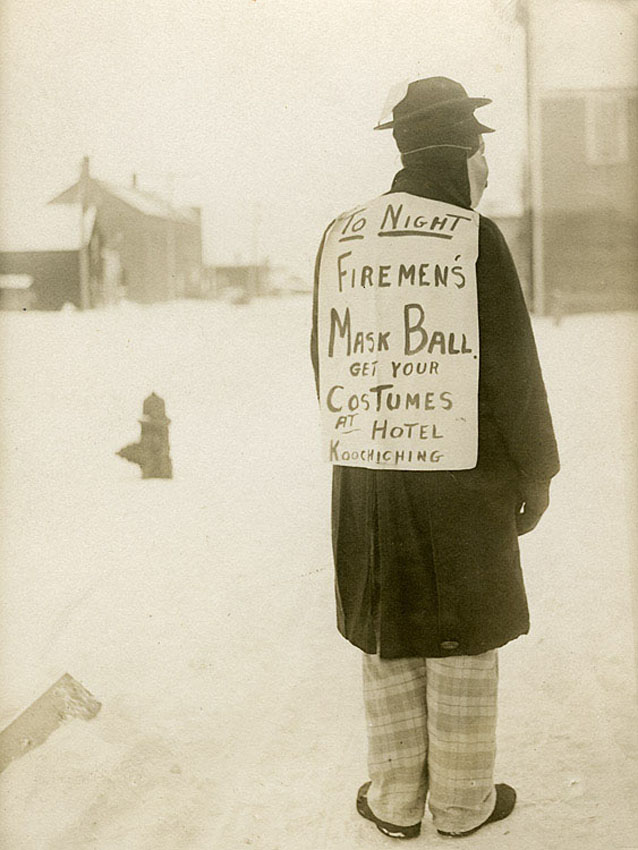 To Night
Firemen's
Mask Ball.
Get Your
Costumes
At Hotel
Koochiching